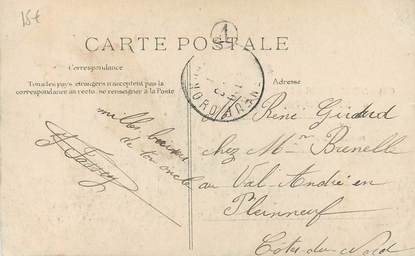 15€
1
CARTE POSTALE
Correspondance
Tous les pays étrangers n'acceptent pas la
correspondance au recto. se renseigner à la Poste
Adresse
mille baisers
de ton oncle
René Girard
chez Mr Brenelle
au Val-André en
Pleineuf
Côtes-du-Nord